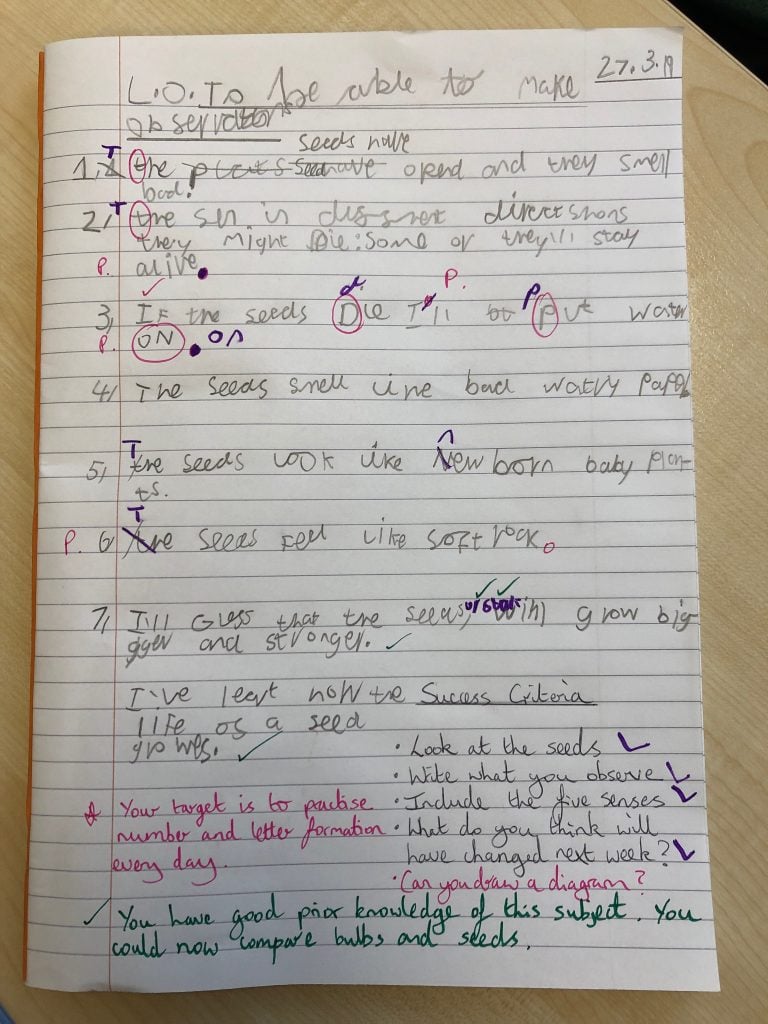 27.3.19
L.O. To be able to make
observation
seeds have
1, the plants seed have opend and they smell
bad!
2, T the sen in diffrnet directshons
they might Die: some of they'll stay
P. alive.
d. P. P
3, If the seeds Die I'll Put water
P. ON. on
4, The seeds smell like bad watry Paper
T n
5, the seeds look like New born baby plan-
ts.
T
P. 6, the seeds feel like soft rock.
7, I'll Guess that the seeds, will grow big-
gger and stronger.
I've leart how the Success Criteria
life of a seed
growes.
• Look at the seeds
• Write what you observe
• Include the five senses
• What do you think will
have changed next week?
• Can you draw a diagram?
Your target is to practise
number and letter formation
every day.
You have good prior knowledge of this subject. You
could now compare bulbs and seeds.